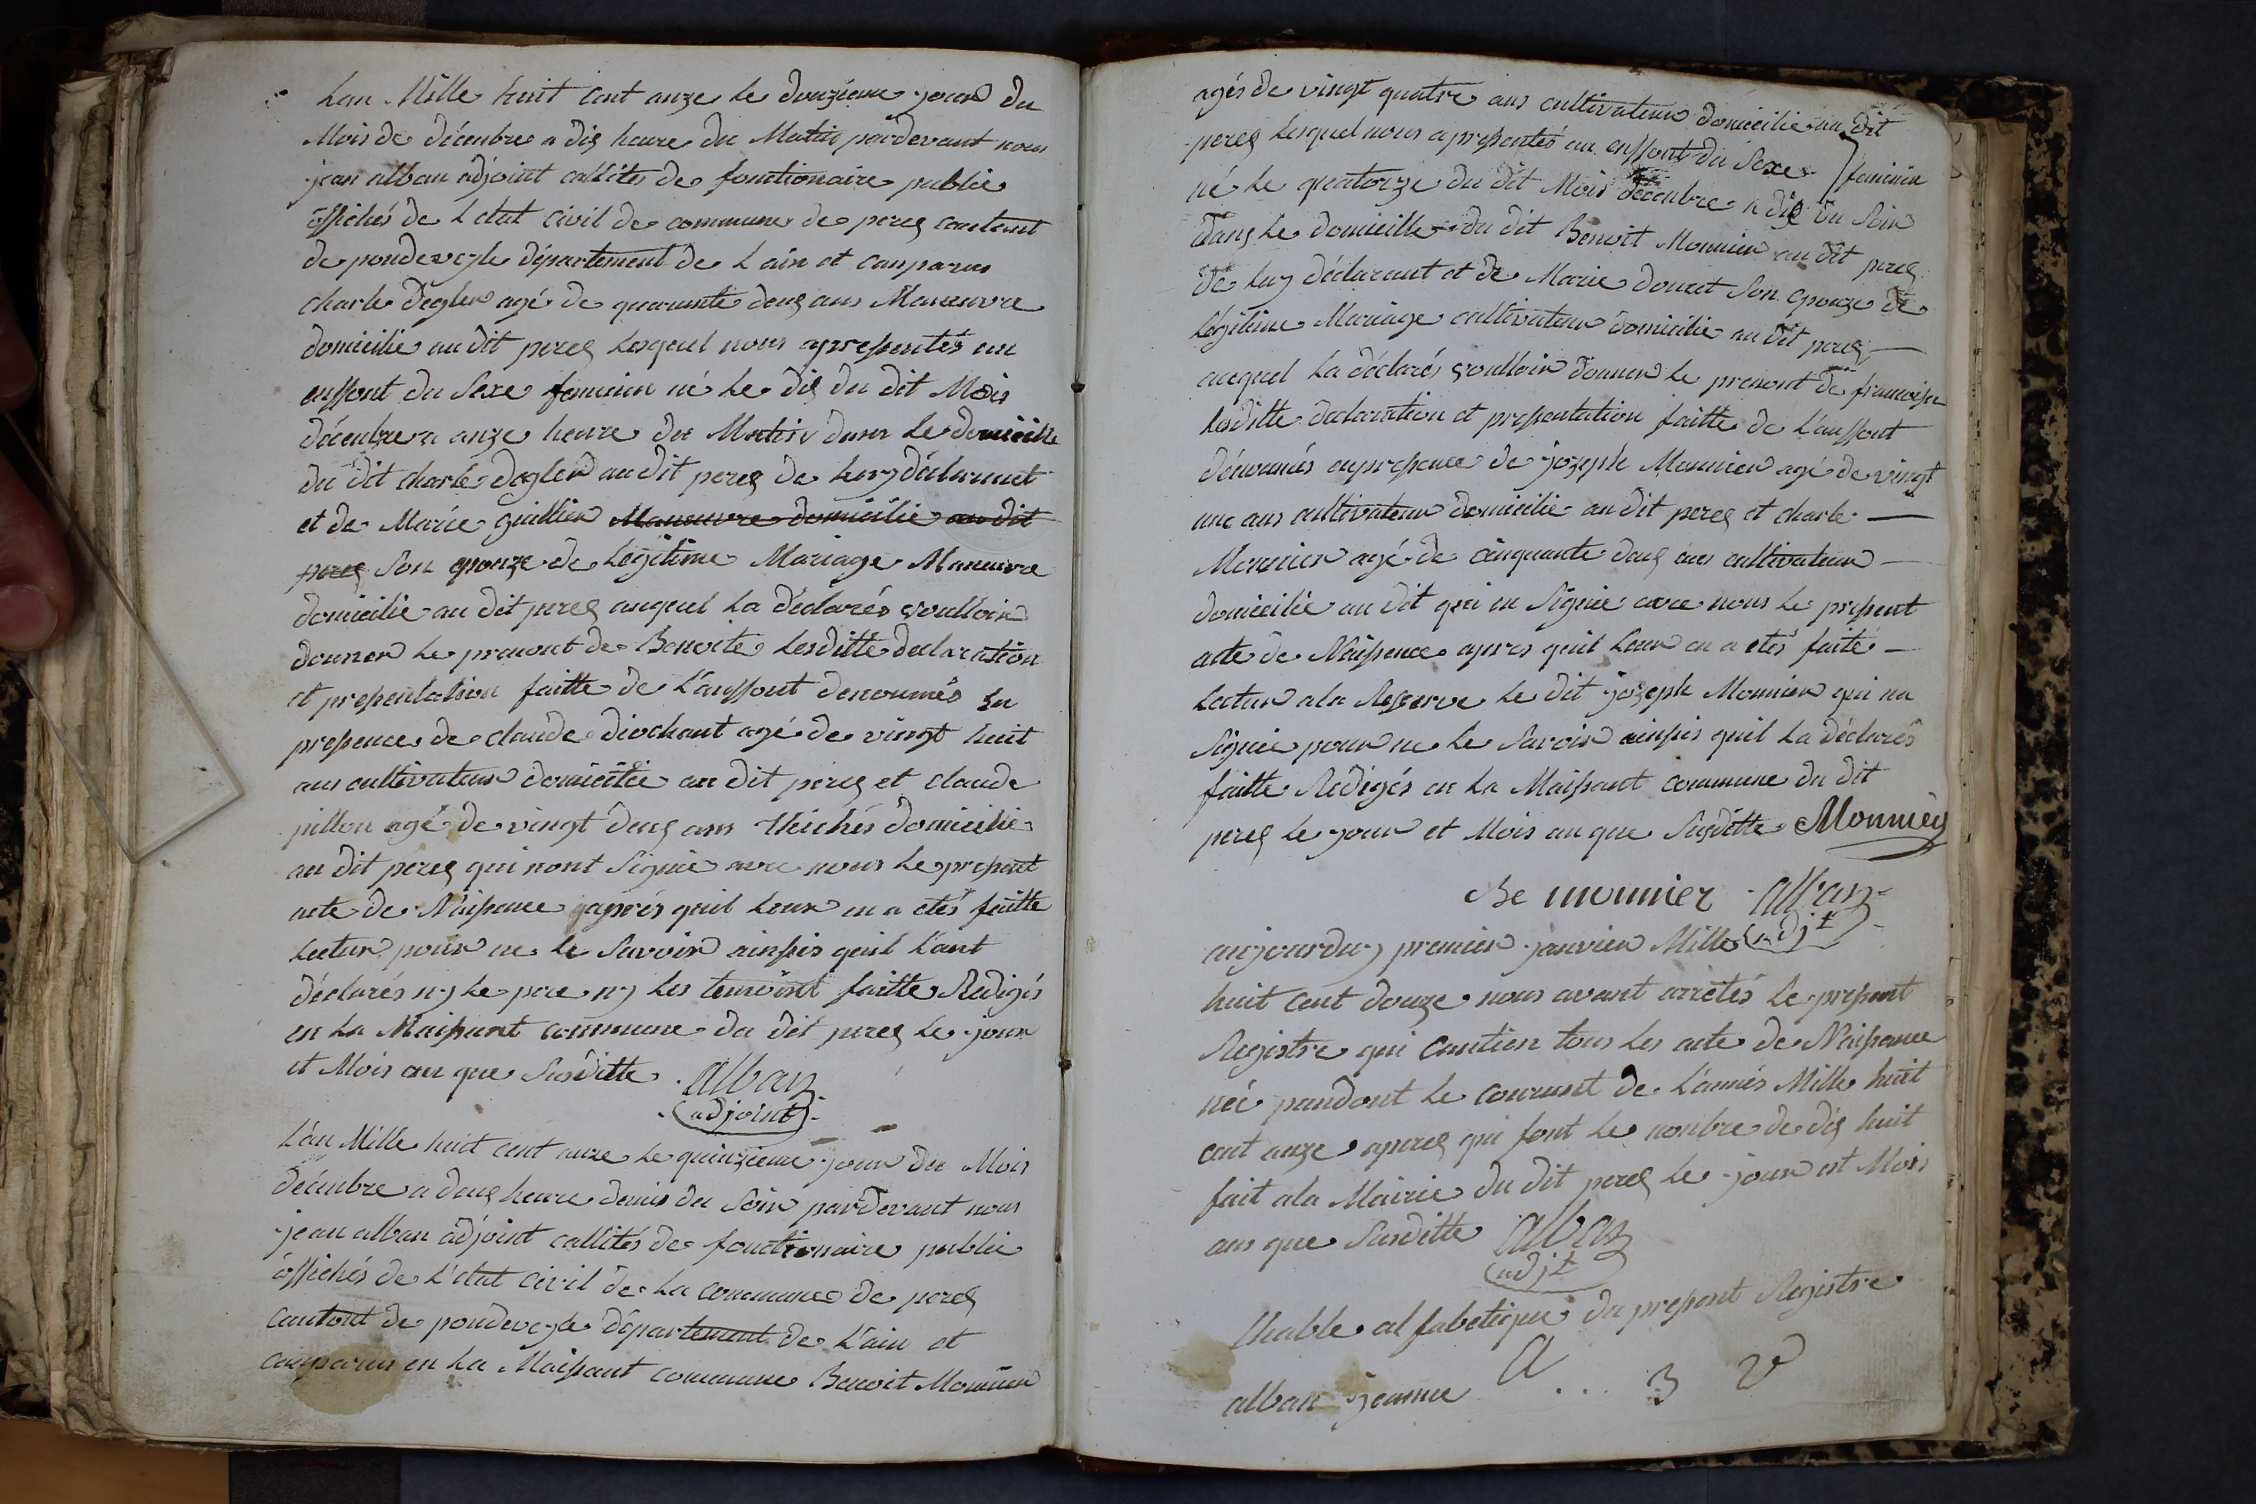 Lan Mille huit cent onze le douzieme jour du
Mois de décembre a dis heure du Matin pardevant nous
jean alban adjoint callités de fonctionaire publie
offichés de Letat civil de commune de perez cantont
de pondeveyle département de Lain et conparus
charle degler agé de quarante deuz ans Maneuvre
domicilie au dit perez Lesquel nous a presentés un
enffont du Sexe feminin né Le dis du dit Mois
décenbre a onze heure du Matin dans Le domicille
du dit charle degler au dit perez de Luy déclarant
et de Marie guillier Maneuvre domicilie au dit
perez Son epouze de Légitime Mariage Maneuvre
domicilie au dit perez auquel La déclarés voulloir
donner Le prenont de Benoite Lesditte declaration
et presentation faitte de L'anffont denoumés En
presence de claude diochant agé de vingt huit
ans cultivateur domicilie au dit perez et claude
pillon agé de vingt deuz ans domicilie
au dit perez qui nont Signie avec nous Le present
acte de Naissance aprés quil Leur en a etés faitte
Lectur pour ne le Savoir ainssis quil Lant
déclarés ny Le pere ny Les temoint faitte Redigés
en La Maissont commune du dit perez Le jour
et Mois an que Susditte alban
adjoint
L'an Mille huit cent onze Le quinzieme jour du Mois
décembre a deuz heure demis du Soir pardevant nous
jean alban adjoint callités de fonctionaire publie
offichés de L'etat civil de La commune de perez
Cantont de pondeveyle département de L'ain et
conparus en La Maissont commune Benoit Monnier
agés de vingt quatre ans cultivateur domicilie au dit
perez Lesquel nous a presentés un enffont du Sexe feminin
né Le quatorze du dit Mois décenbre a dis du Soir
dans Le domicille du dit Benoit Monnier au dit perez
de Luy déclarant et de Marie douret Son epouze de
Légitime Mariage cultivateur domicilie au dit perez
auquel La déclarés voulloir donner Le prenont de francoise
Lesditte declaration et presentation faitte de L'anffont
dénoumés enpresence de jozeph Monnier agé de vingt
une ans cultivateur domicilie au dit perez et charle
Monnier agé de cinquante deuz ans cultivateur
domicilie au dit qui en Signie avec nous Le present
acte de Naissence apres quil Leur en a etés faite
Lectur a la Reserve Le dit jozeph Monnier qui na
Signie pour ne Le Savoir ainssis quil La déclarés
faitte Redigés en La Maissont commune du dit
perez Le jour et Mois an que Susditte Monnier
Be monnier alban
adjt
aujourduy premier janvier Mille
huit cent douze nous avont arretés Le present
Registre qui contien tous Les acte de Naissance
née pandont Le courant de L'annés Mille huit
cent onze aperez qui font Le nonbre de dis huit
fait ala Mairie du dit perez Le jour et Mois
ans que Susditte alban
adjt
thable alfabetique du present Registre
A
alban jeanne ... 3 v